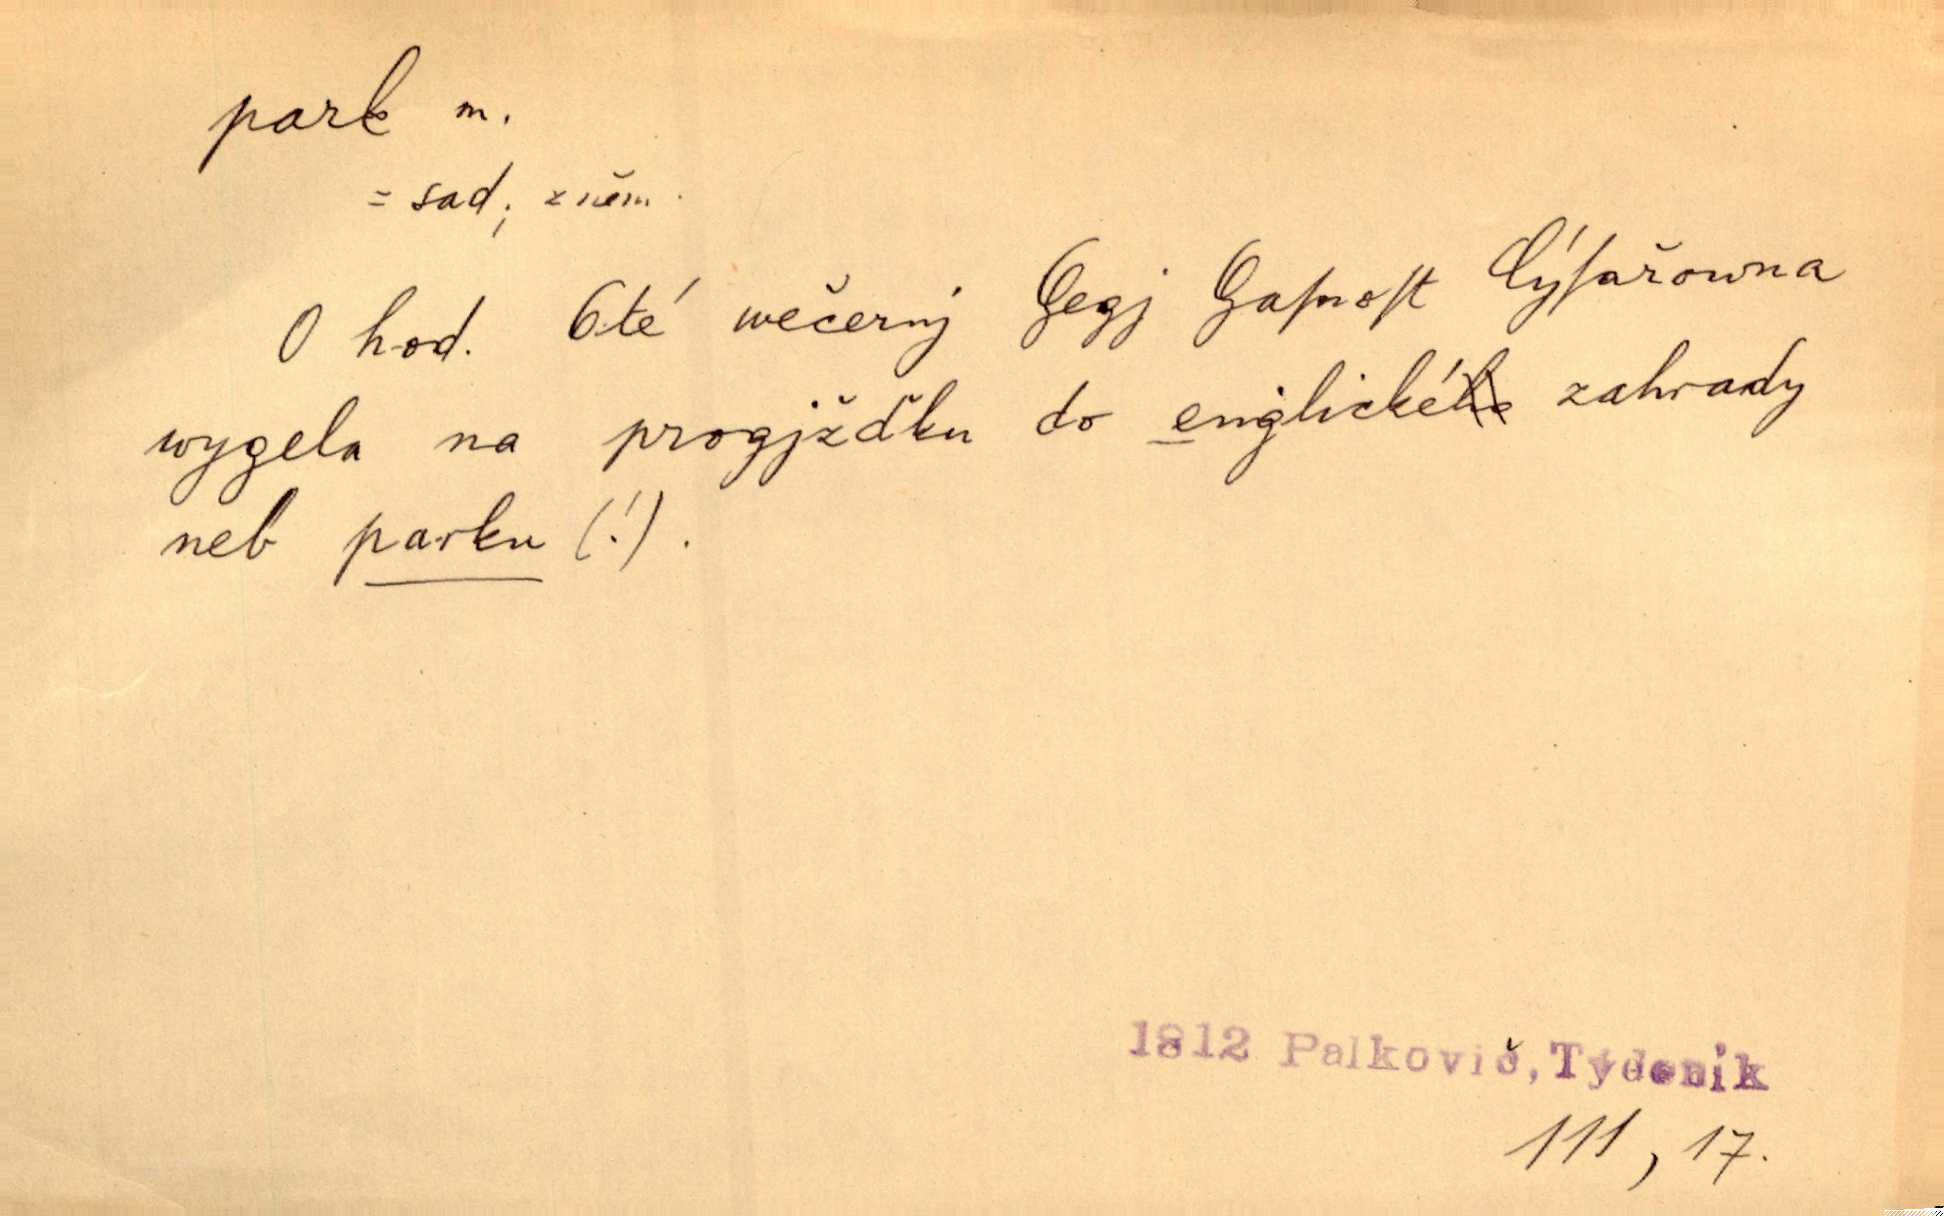 park m.
= sad; z něm.
O hod. 6té wečernj Gegj Gasnost Cýsařowna
wygela na progjžďku do englické zahrady
neb parku (!).
1812 Palkovič, Týdeník
III, 17.